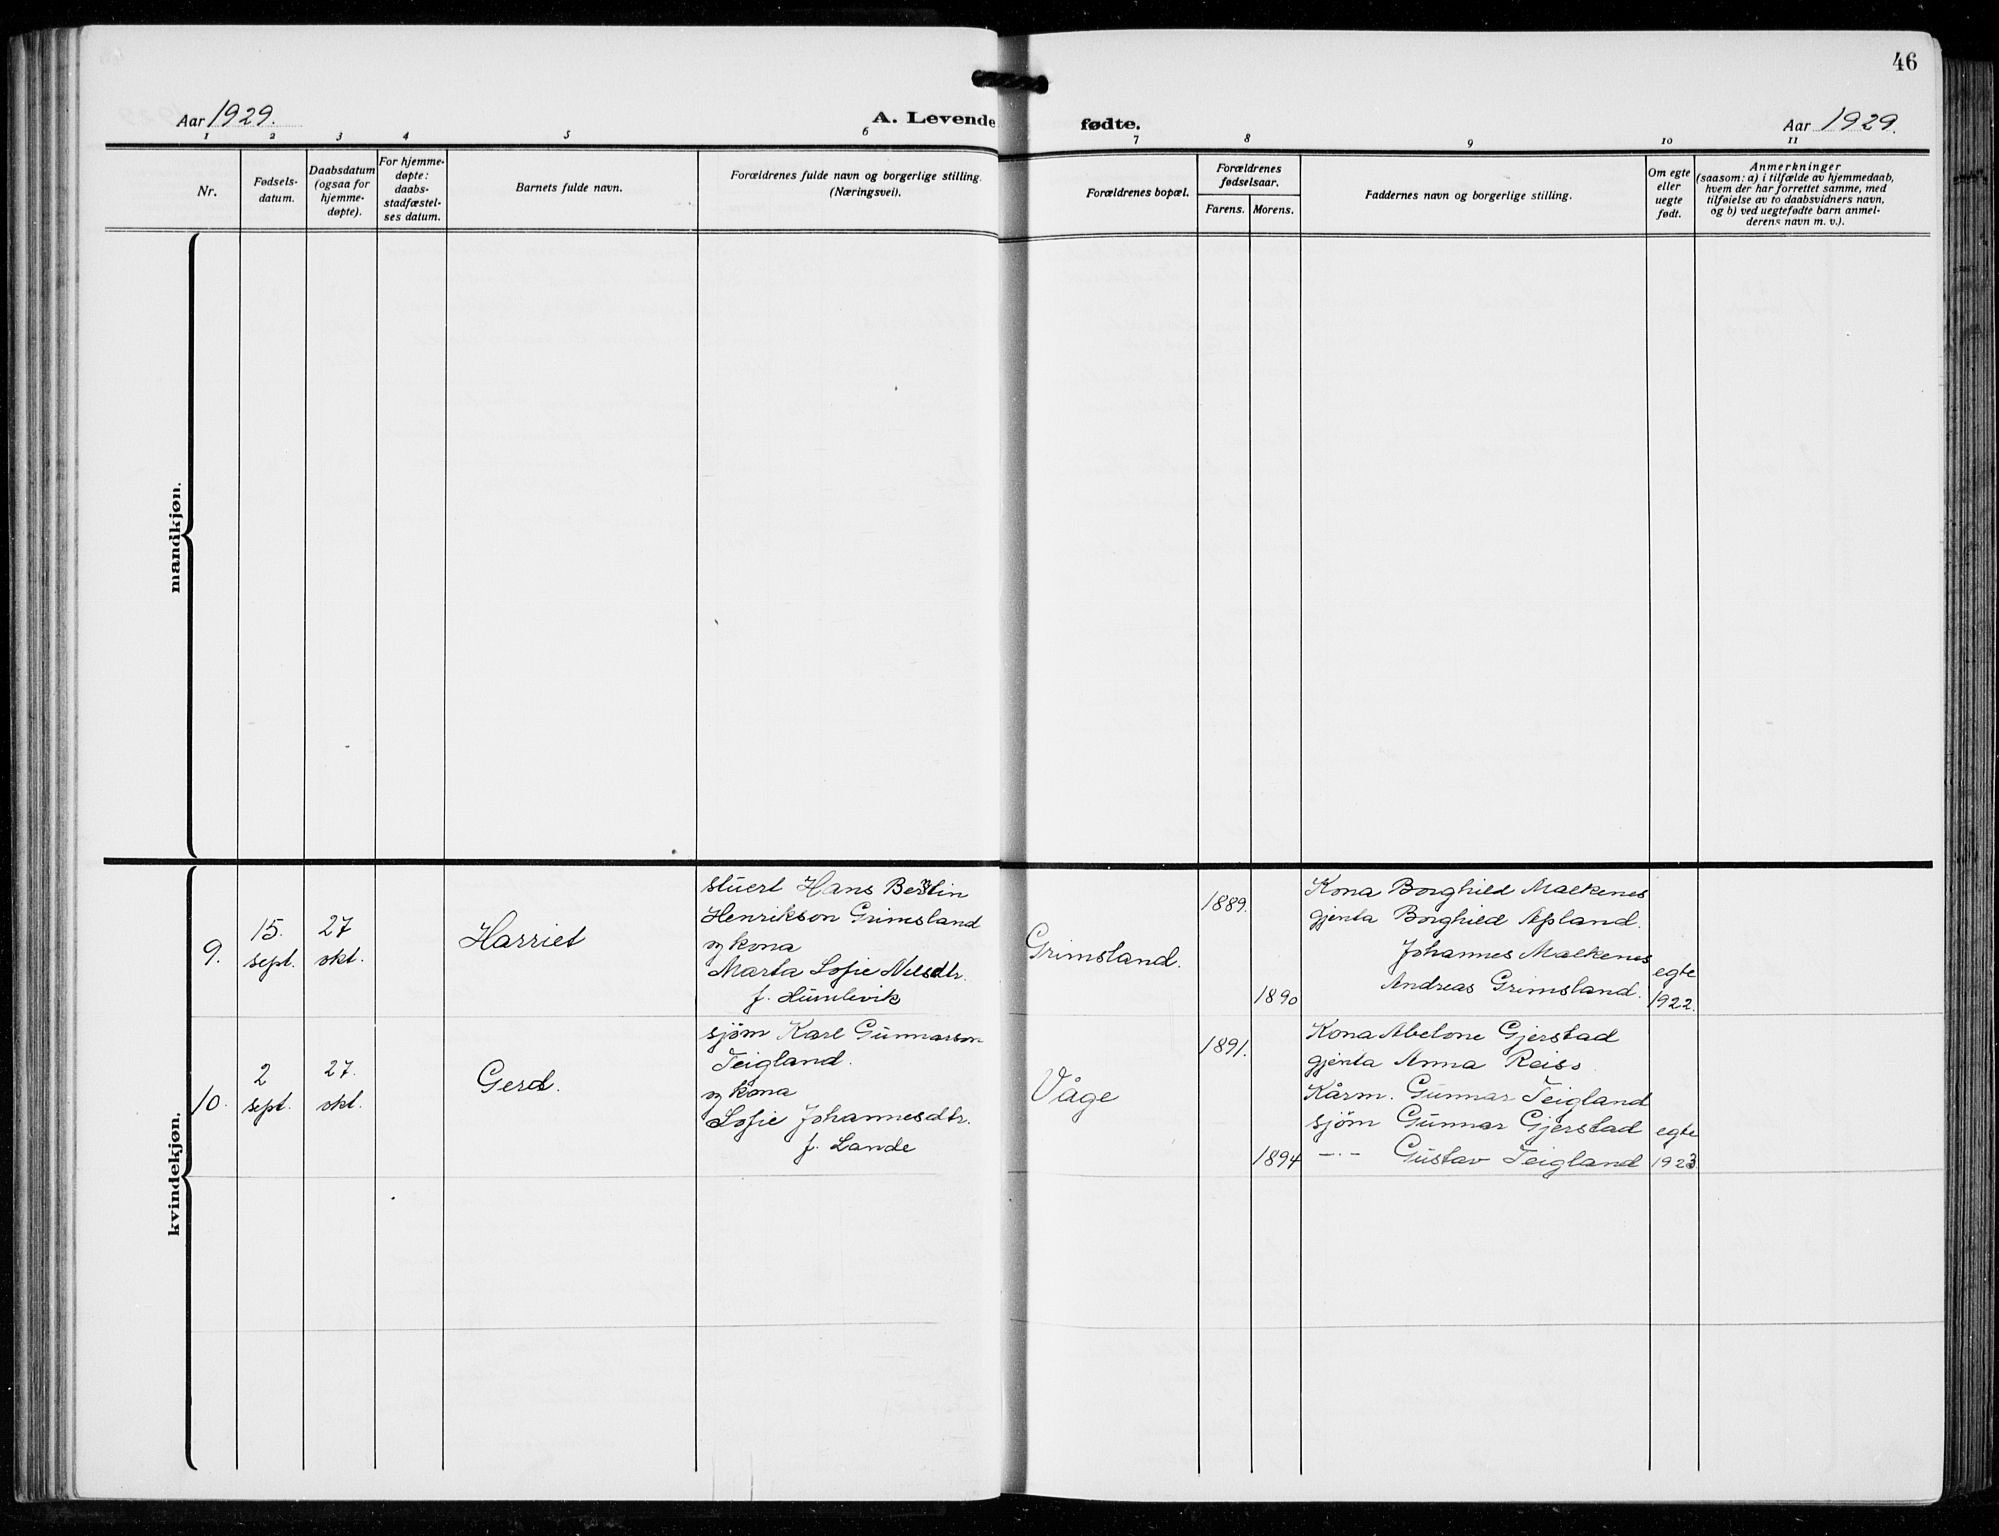 46
Aar 1929.
A. Levende fødte.
Aar 1929.
1 2 3 4 5 6 7 8 9 10 11
Nr.
Fødsels-
datum.
Daabsdatum
(ogsaa for
hjemme-
døpte).
For hjemme-
døpte:
daabs-
stadfæstel-
ses datum.
Barnets fulde navn.
Forældrenes fulde navn og borgerlige stilling.
(Næringsvei).
Forældrenes bopæl.
Forældrenes
fødselsaar.
Farens. Morens.
Faddernes navn og borgerlige stilling.
Om egte
eller
uegte
født.
Anmerkninger
(saasom: a) i tilfælde av hjemmedaab,
hvem der har forrettet samme, med
tilføielse av to daabsvidners navn,
og b) ved uegtefødte barn anmel-
derens navn m. v.).
mandkjøn.
kvindekjøn.
9.
15.
sept.
27
okt.
Harriet
stuert Hans Bertin
Henrikson Grimsland
og kona
Marta Sofie Nilsdtr.
f. Humlevik
Grimsland.
1889.
1890
Kona Borghild Malkenes
gjenta Borghild Apland.
Johannes Malkenes
Andreas Grimsland.
egte
1922.
10.
2
sept.
27.
okt.
Gerd.
sjøm Karl Gunnarson
Teigland.
og kona
Sofie Johannesdtr.
f. Lande
Våge
1891.
1894
Kona Abelone Gjerstad
gjenta Anna Reiso
Kårm. Gunnar Teigland
sjøm Gunnar Gjerstad
—·— Gustav Teigland
egte
1923